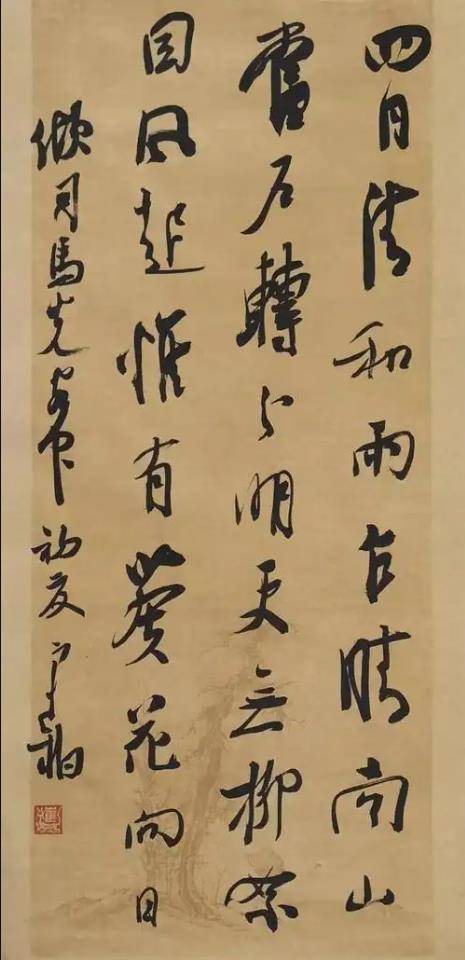 四月清和雨乍晴南山
當戶轉分明更無柳絮
因風起惟有葵花向日
傾司馬光客中初夏